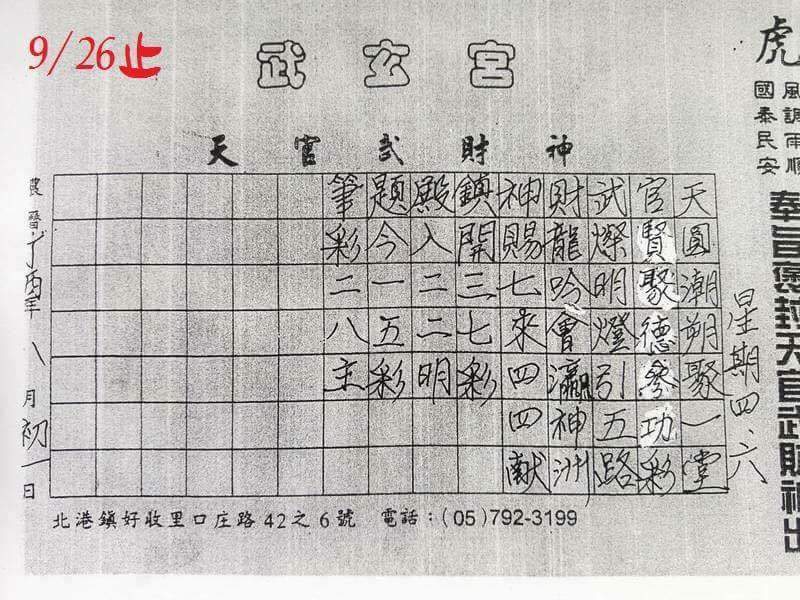 9/26止
武玄宮
天官武財神
虎
風調雨順
國泰民安
奉旨褒封天官武財神出
星期四、六
天圓潮朔聚一堂
官賢聚德參功彩
武燦明燈引五路
財龍吟會瀛神洲
神賜七來四四献
鎮開三七彩
殿入二二明
題今一五彩
筆彩二八主
農曆丁酉年八月初一日
北港鎮好收里口庄路42之6號 電話：(05)792-3199